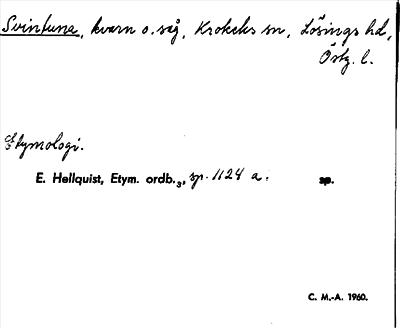 Svintuna, kvarn o. såg, Krokeks sn, Lösings hd,
Östg. l.
Etymologi.
E. Hellquist, Etym. ordb.₃, sp. 1124 a. sp.
C. M.-A. 1960.